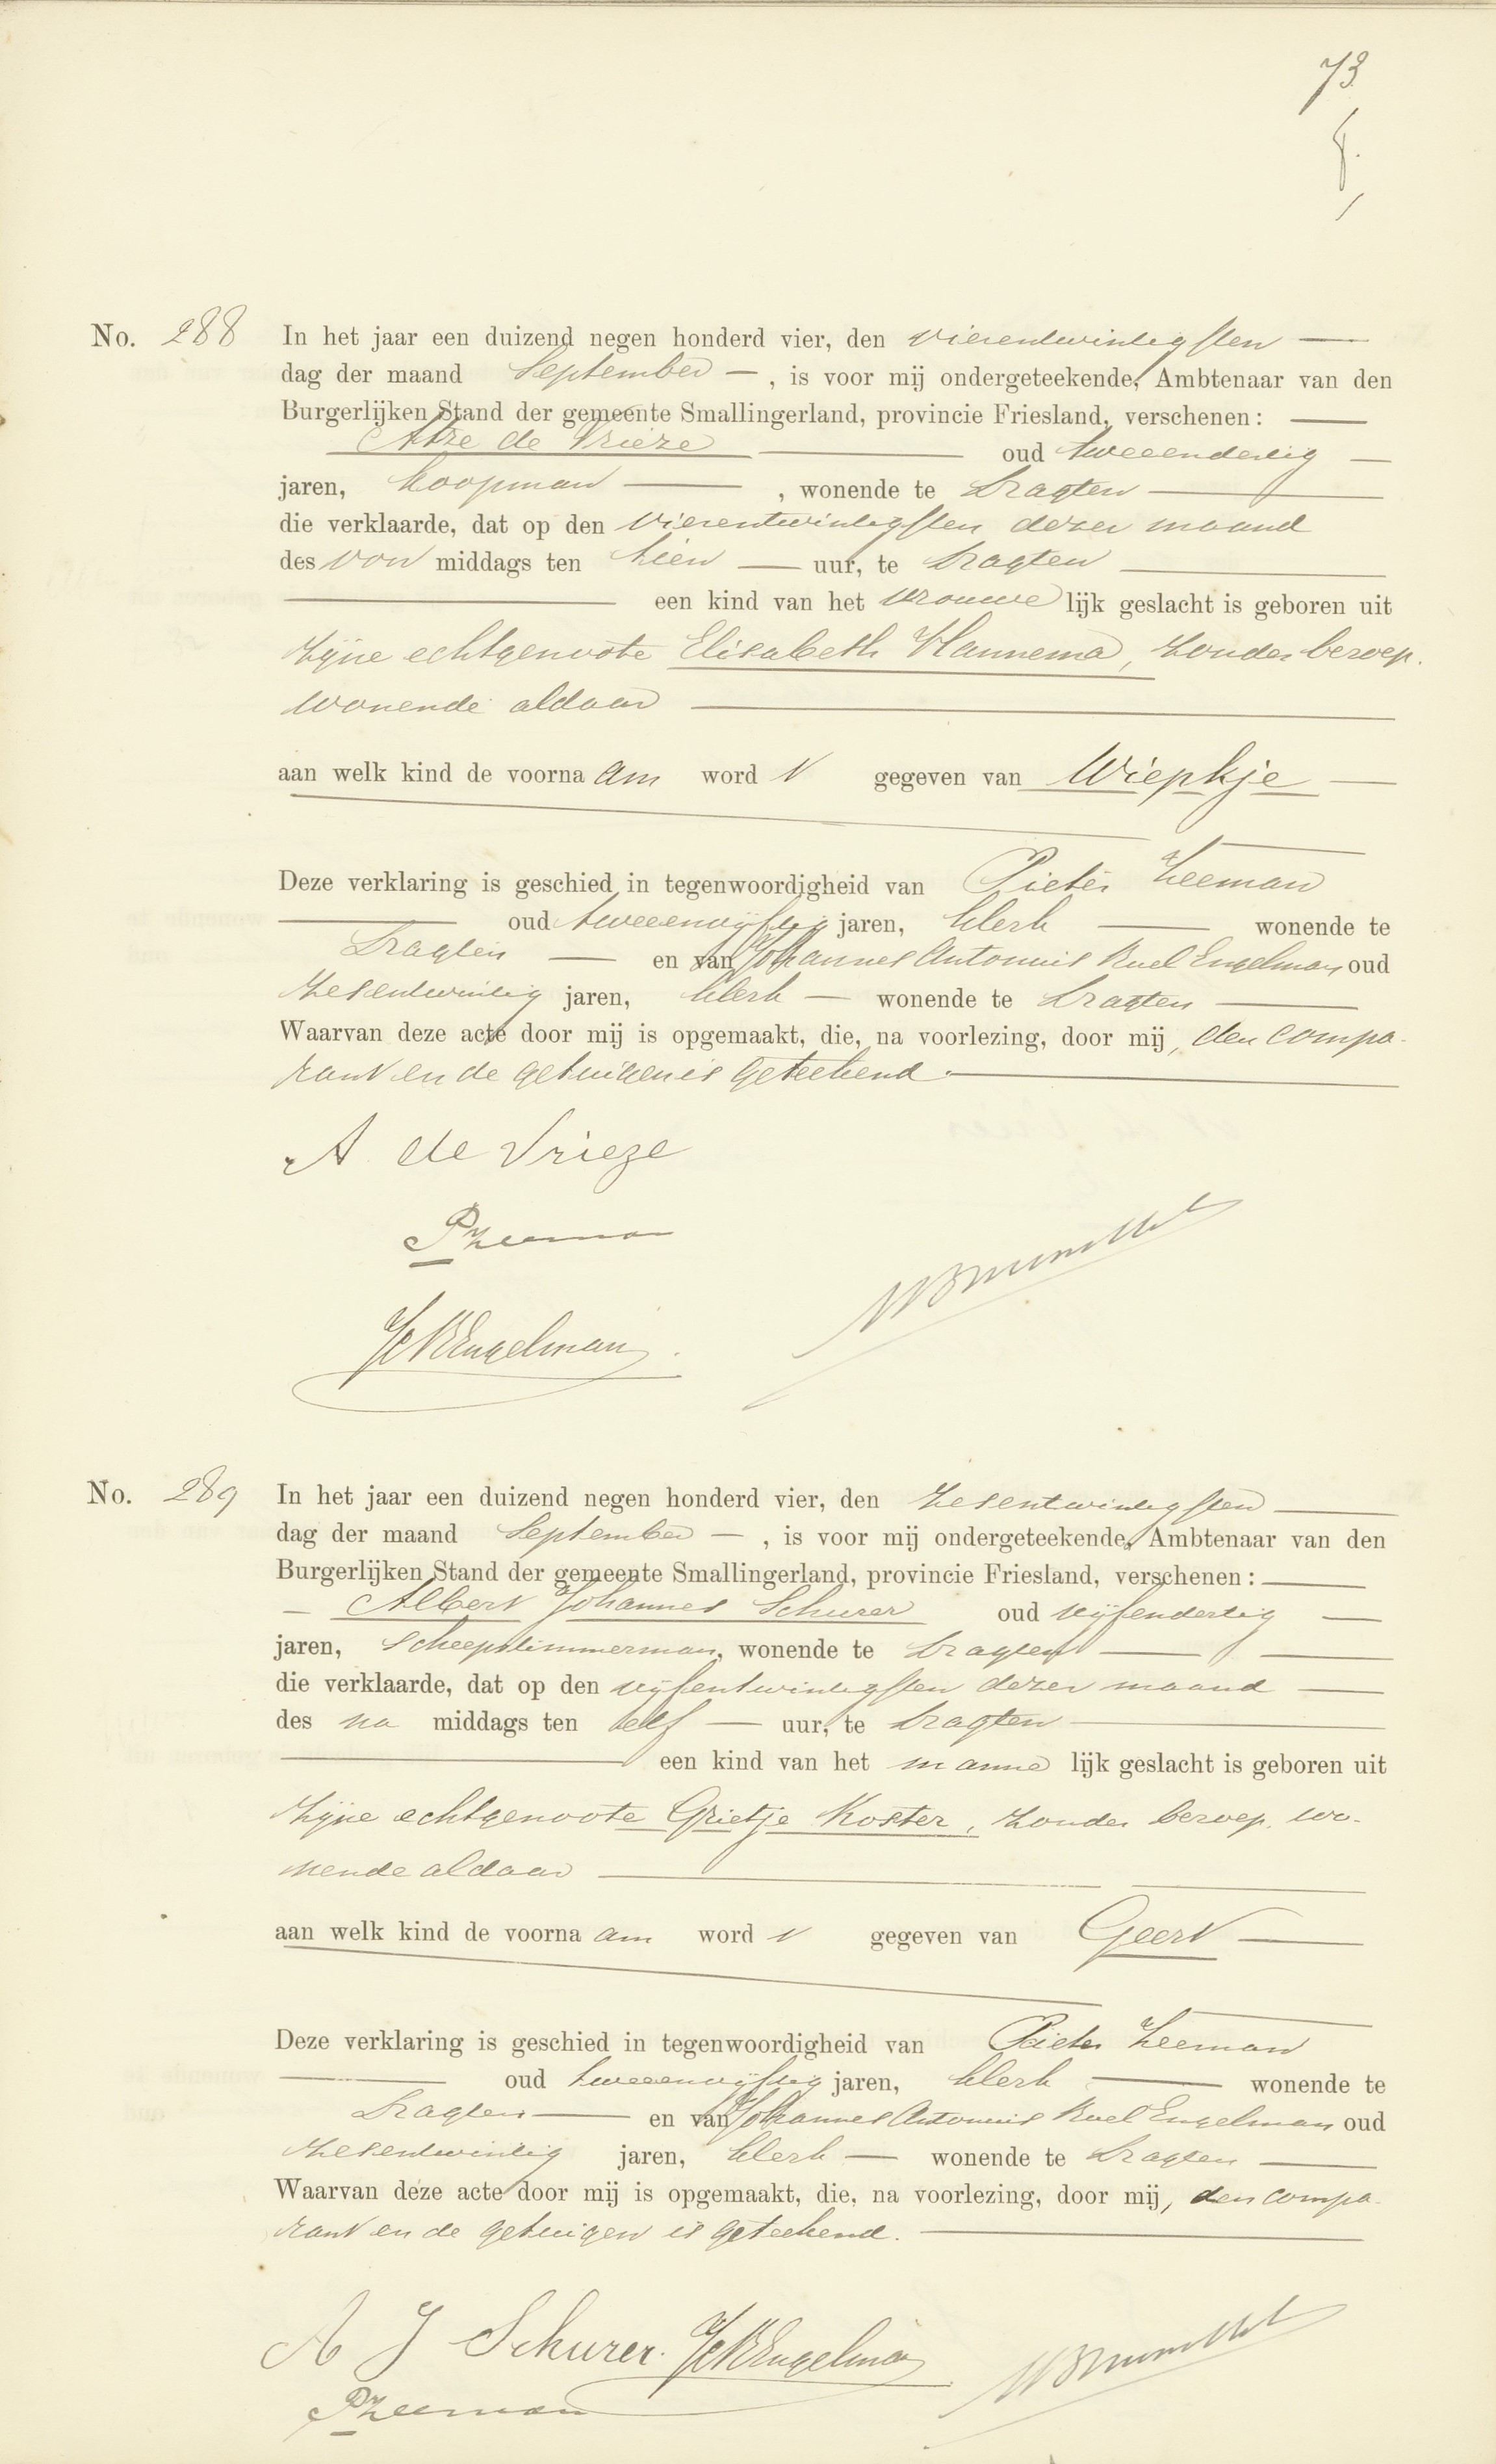 73
No. 288 In het jaar een duizend negen honderd vier, den vierentwintigsten
dag der maand September, is voor mij ondergeteekende, Ambtenaar van den
Burgerlijken Stand der gemeente Smallingerland, provincie Friesland, verschenen:
Atze de Vrieze oud tweeendertig
jaren, koopman, wonende te Dragten
die verklaarde, dat op den vierentwintigsten dezer maand
des voor middags ten tien uur, te Dragten
een kind van het vrouwelijk geslacht is geboren uit
zijne echtgenoote Elisabeth Hannema, zonder beroep,
wonende aldaar
aan welk kind de voornaam wordt gegeven van Wiepkje
Deze verklaring is geschied in tegenwoordigheid van Pieter Zeeman
oud tweeenvijftig jaren, klerk wonende te
Dragten en van Johannes Antonius Roel Engelman oud
zesentwintig jaren, klerk wonende te Dragten
Waarvan deze acte door mij is opgemaakt, die, na voorlezing, door mij, den compa-
rant en de getuigen is geteekend.
A de Vrieze
P Zeeman
Engelman
No. 289 In het jaar een duizend negen honderd vier, den zesentwintigsten
dag der maand September, is voor mij ondergeteekende, Ambtenaar van den
Burgerlijken Stand der gemeente Smallingerland, provincie Friesland, verschenen:
Albert Johannes Schurer oud vijfendertig
jaren, scheepstimmerman, wonende te Dragten
die verklaarde, dat op den vijfentwintigsten dezer maand
des na middags ten elf uur, te Dragten
een kind van het mannelijk geslacht is geboren uit
zijne echtgenoote Grietje Koster, zonder beroep, wo-
nende aldaar
aan welk kind de voornaam wordt gegeven van Geert
Deze verklaring is geschied in tegenwoordigheid van Pieter Zeeman
oud tweeenvijftig jaren, klerk wonende te
Dragten en van Johannes Antonius Roel Engelman oud
zesentwintig jaren, klerk wonende te Dragten
Waarvan deze acte door mij is opgemaakt, die, na voorlezing, door mij, den compa-
rant en de getuigen is geteekend.
A J Schurer. Engelman
P Zeeman